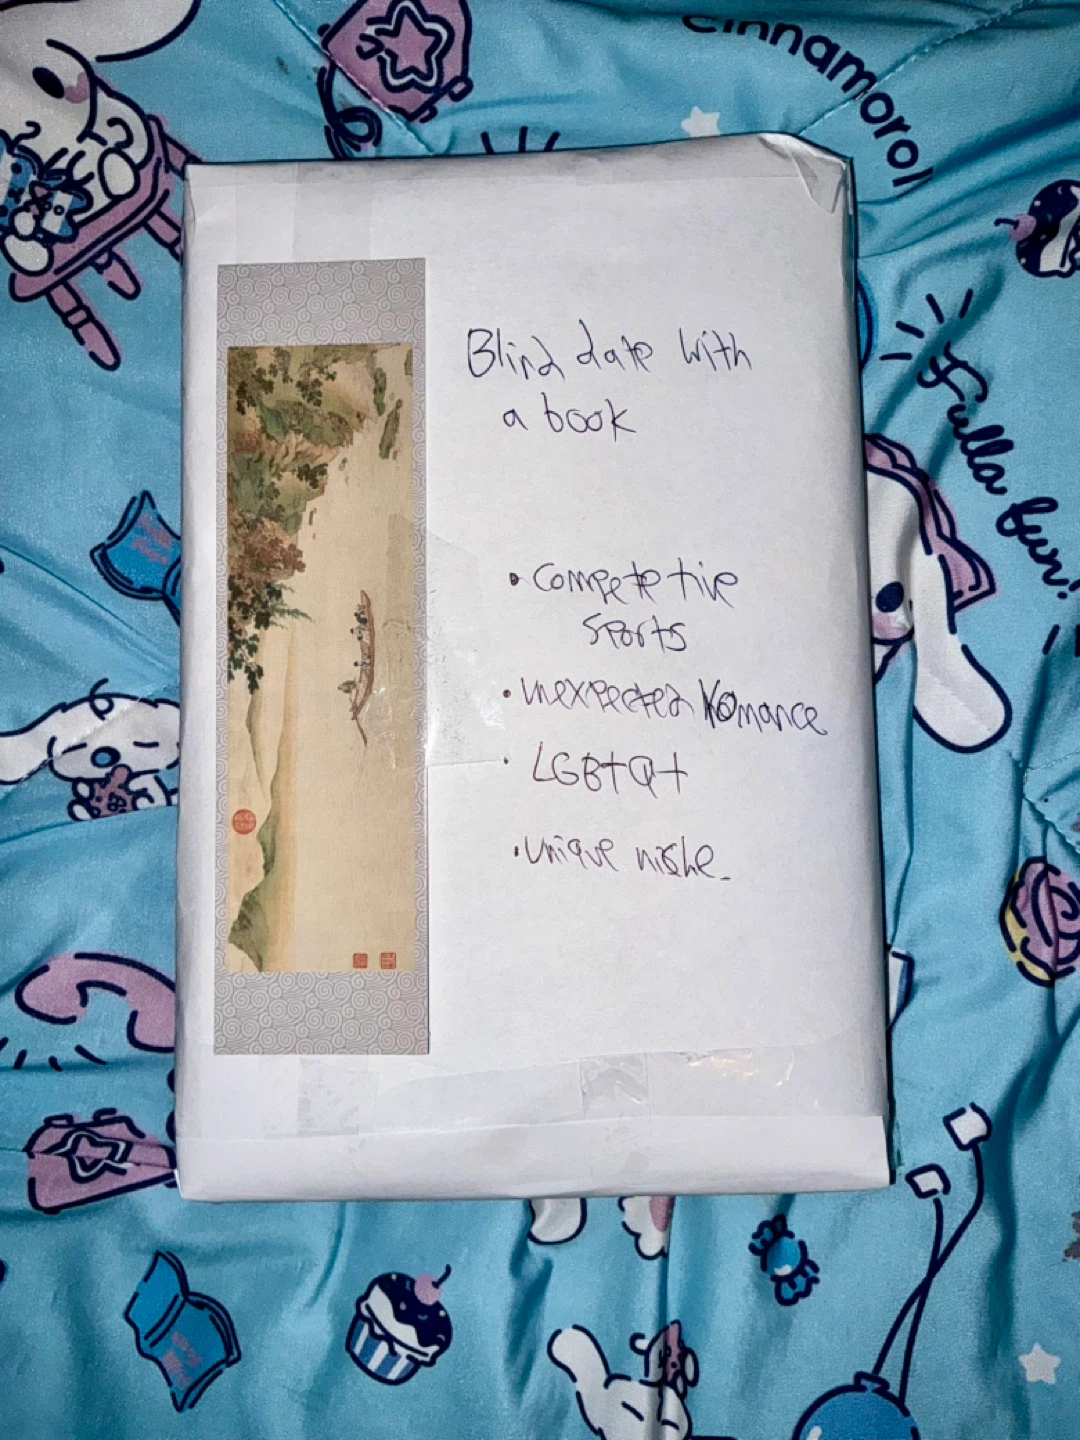 Cinnamorol
Fulla fun!
Blind date with
a book
• Competetive
sports
• unexpected Romance
• LGBTQ+
• unique nishe